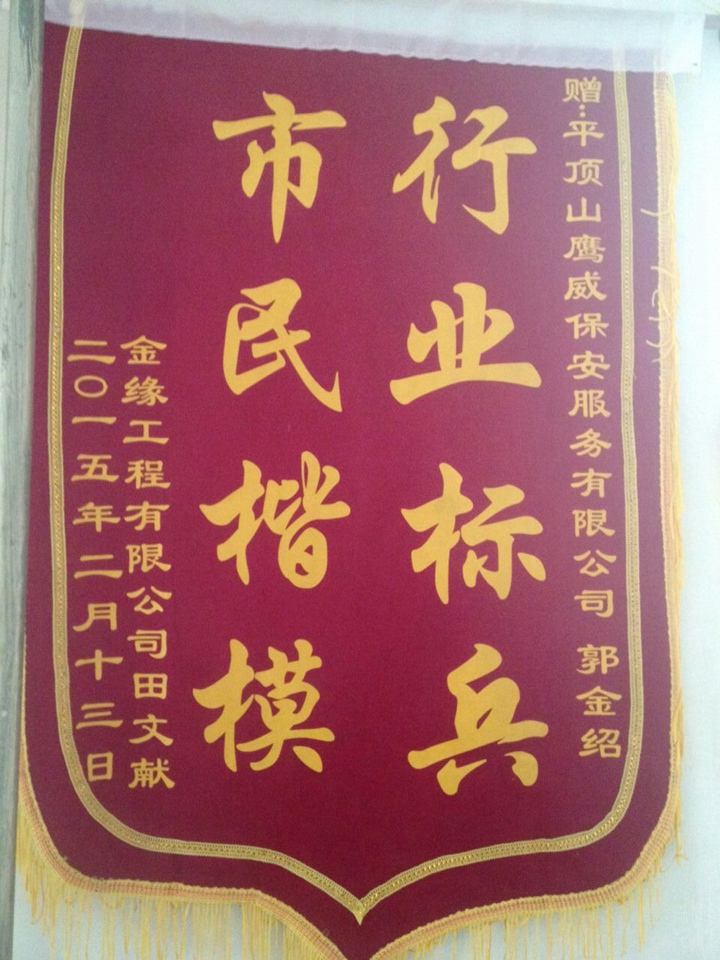 赠:平顶山鹰威保安服务有限公司 郭金绍
行业标兵
市民楷模
金缘工程有限公司田文献
二〇一五年二月十三日